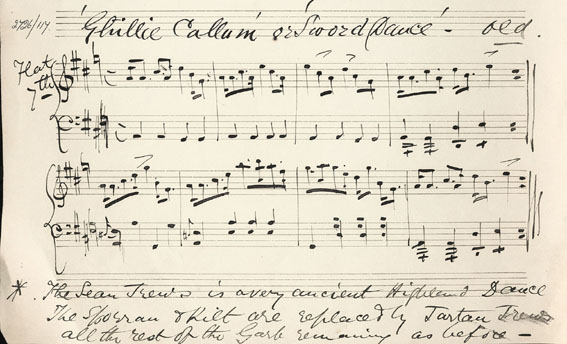 'Ghillie Callum' or 'Sword Dance' - old.
2726/117.
Flat
7th
* . The Sean Trews is a very ancient Highland Dance
The Sporran & Kilt are replaced by Tartan Trews
all the rest of the Garb remaining as before -